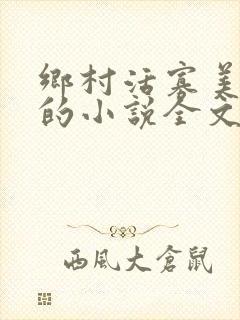 鄉村活寡美
的小說全文
西風大倉鼠